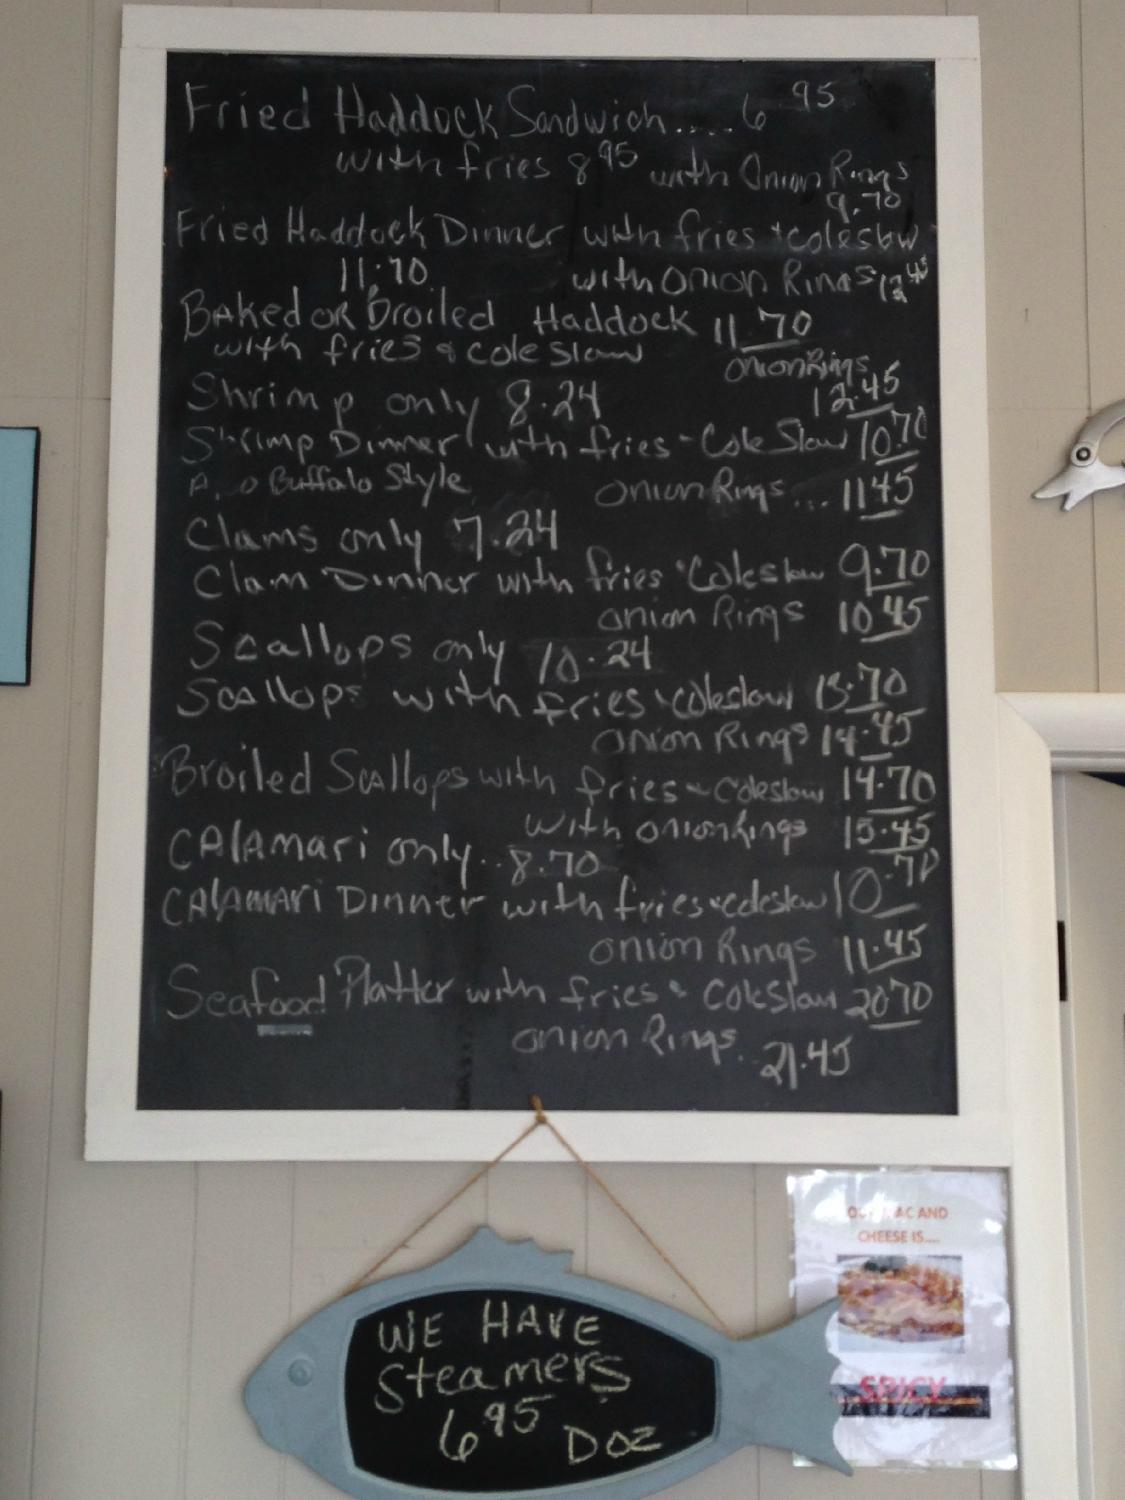 Fried Haddock Sandwich.... 6 95
with fries 8 95 with Onion Rings
9.70
Fried Haddock Dinner with fries + coleslaw
11.70 with Onion Rings 12 45
Baked or Broiled Haddock 11.70
with fries & cole slaw
onion Rings
12.45
Shrimp only 8.24
Shrimp Dinner with fries - Cole Slaw 10.70
Buffalo Style onion Rings... 11 45
Clams only 7.24
Clam Dinner with fries + Coleslaw 9.70
onion Rings 10 45
Scallops only 10.24
Scallops with fries + coleslaw 13.70
onion Rings 14.45
Broiled Scallops with fries + coleslaw 14.70
with onion Rings 15.45
CALAMARI only.. 8.70
CALAMARI Dinner with fries + coleslaw 10.70
onion Rings 11.45
Seafood Platter with fries & Coleslaw 20 70
onion Rings.. 21.45
WE HAVE
Steamers
6 95 Doz
MAC AND
CHEESE IS....
SPICY